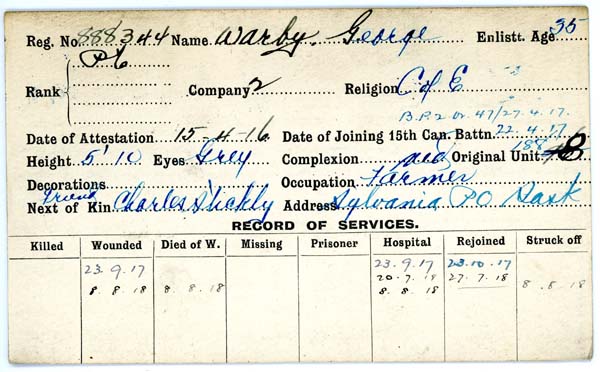 Reg. No. 888344 Name Warby, George Enlistt. Age 35
Rank Pte Company 2 Religion C of E
B.P.2 Or. 47/27.4.17.
Date of Attestation 15-4-16 Date of Joining 15th Can. Battn. 22.4.17
Height 5' 10 Eyes Grey Complexion Med Original Unit 188
Decorations Occupation Farmer
Friend
Next of Kin Charles Stickly Address Sylvania P.O. Sask
RECORD OF SERVICES.
Killed Wounded Died of W. Missing Prisoner Hospital Rejoined Struck off
23.9.17 23.9.17 23.10.17
20.7.18 27.7.18
8.8.18 8.8.18 8.8.18 8.8.18